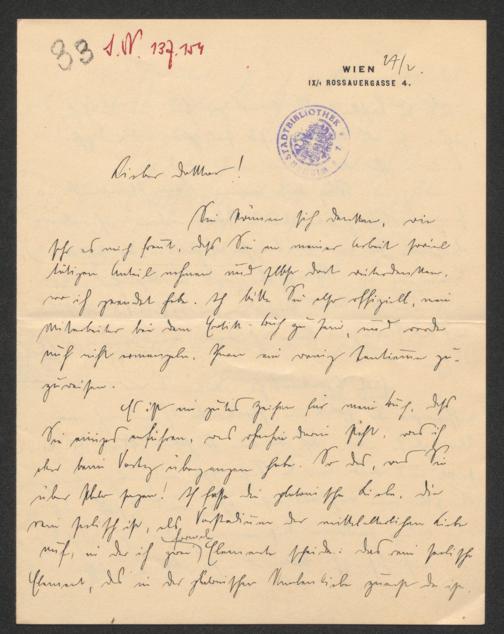 33 I.N. 137.154
WIEN 27/2.
IX/1 ROSSAUERGASSE 4.
STADTBIBLIOTHEK
Lieber Doktor!
Sie können sich denken, wie
sehr es mich freut, daß Sie an meiner Arbeit soviel
tätigen Anteil nehmen und selbst dort weiterdenken,
wo ich geendet habe. Ich bitte Sie also offiziell, mein
Mitarbeiter bei dem Erotik-Buch zu sein, und werde
auch nicht ermangeln, Ihnen ein wenig Tantiemen zu-
zuweisen.
Es ist ein gutes Zeichen für mein Buch, daß
Sie einiges anführen, was ohnehin darin steht, was ich
aber beim Vortrag übergangen habe. So das, was Sie
über Plato sagen! Ich fasse die platonische Liebe, die
rein seelisch ist, als Vorstadium der mittelalterlichen Liebe
auf, in der ich zwei Elemente scheide: das rein seelische
Element, das in der platonischen Knabenliebe zuerst da ist